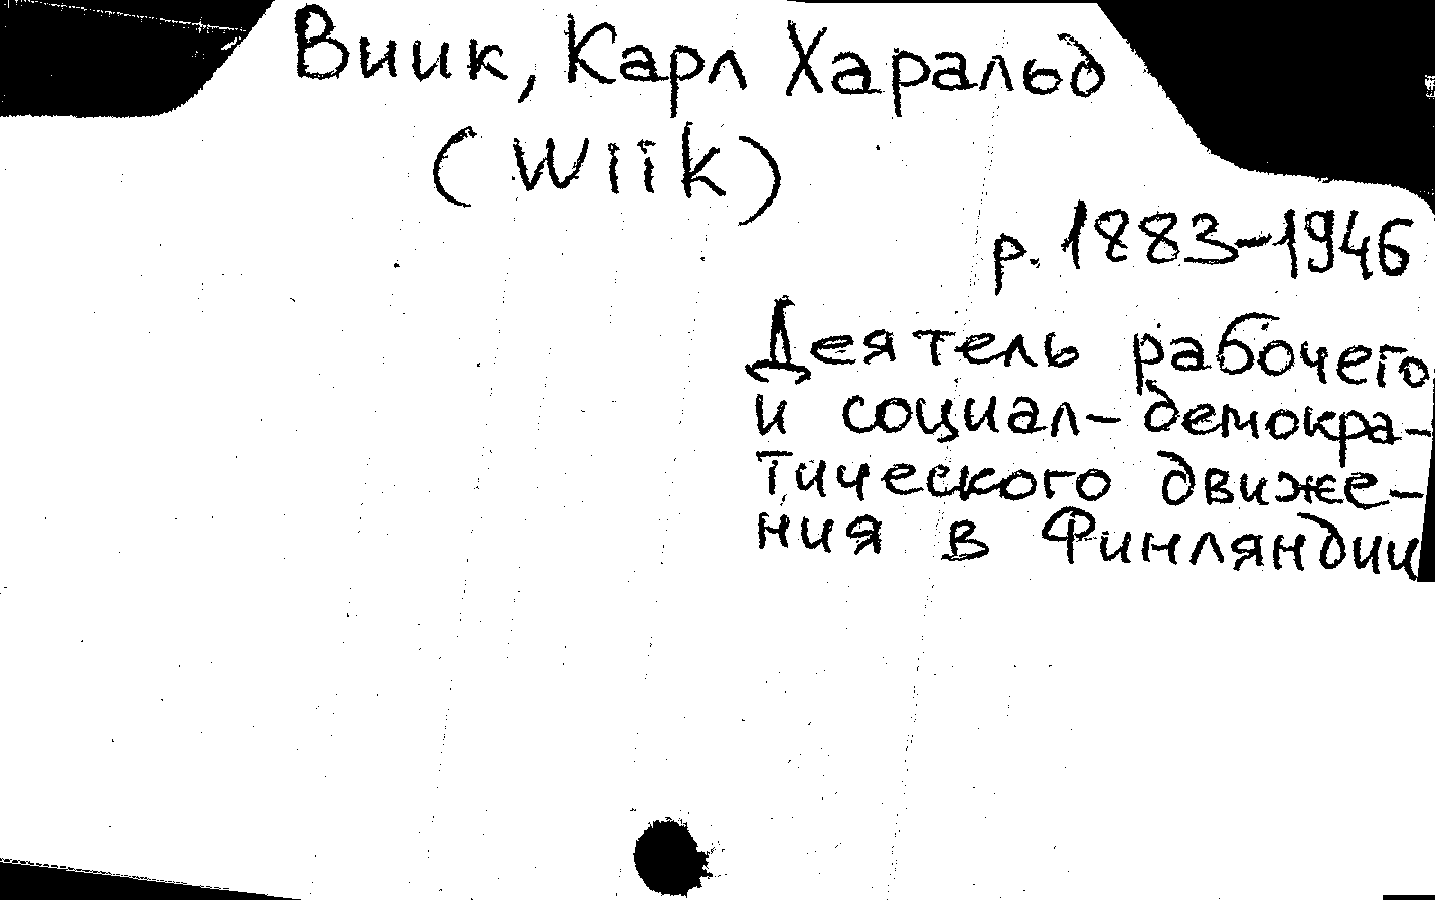 Виик, Карл Харальд
(Wiik)
р. 1883-1946
Деятель рабочего
и социал-демокра-
тического движе-
ния в Финляндии